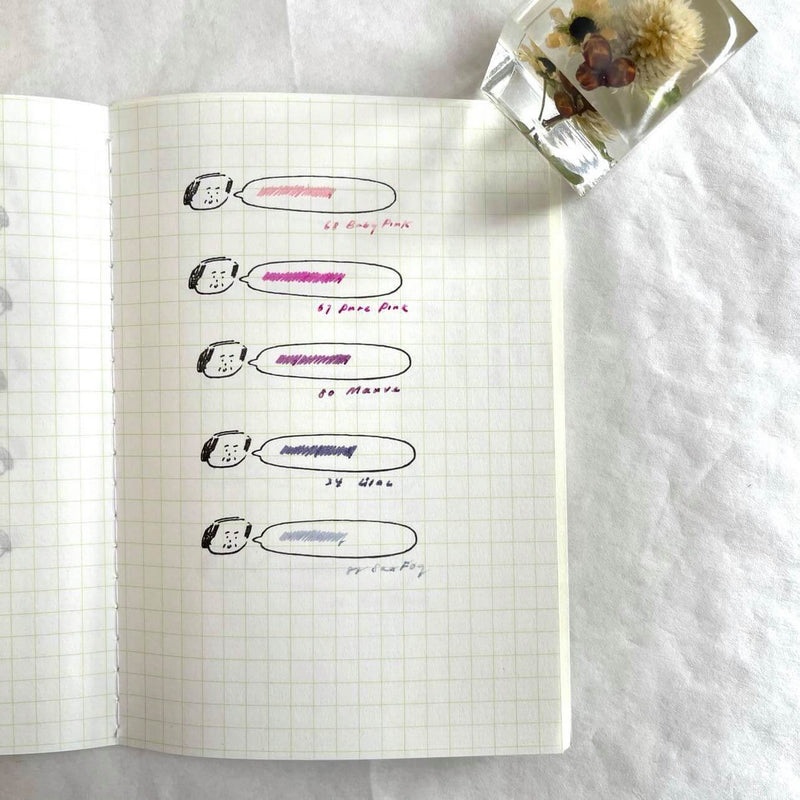 68 Baby Pink
67 Pure Pink
80 Mauve
24 Lilac
Sea Fog